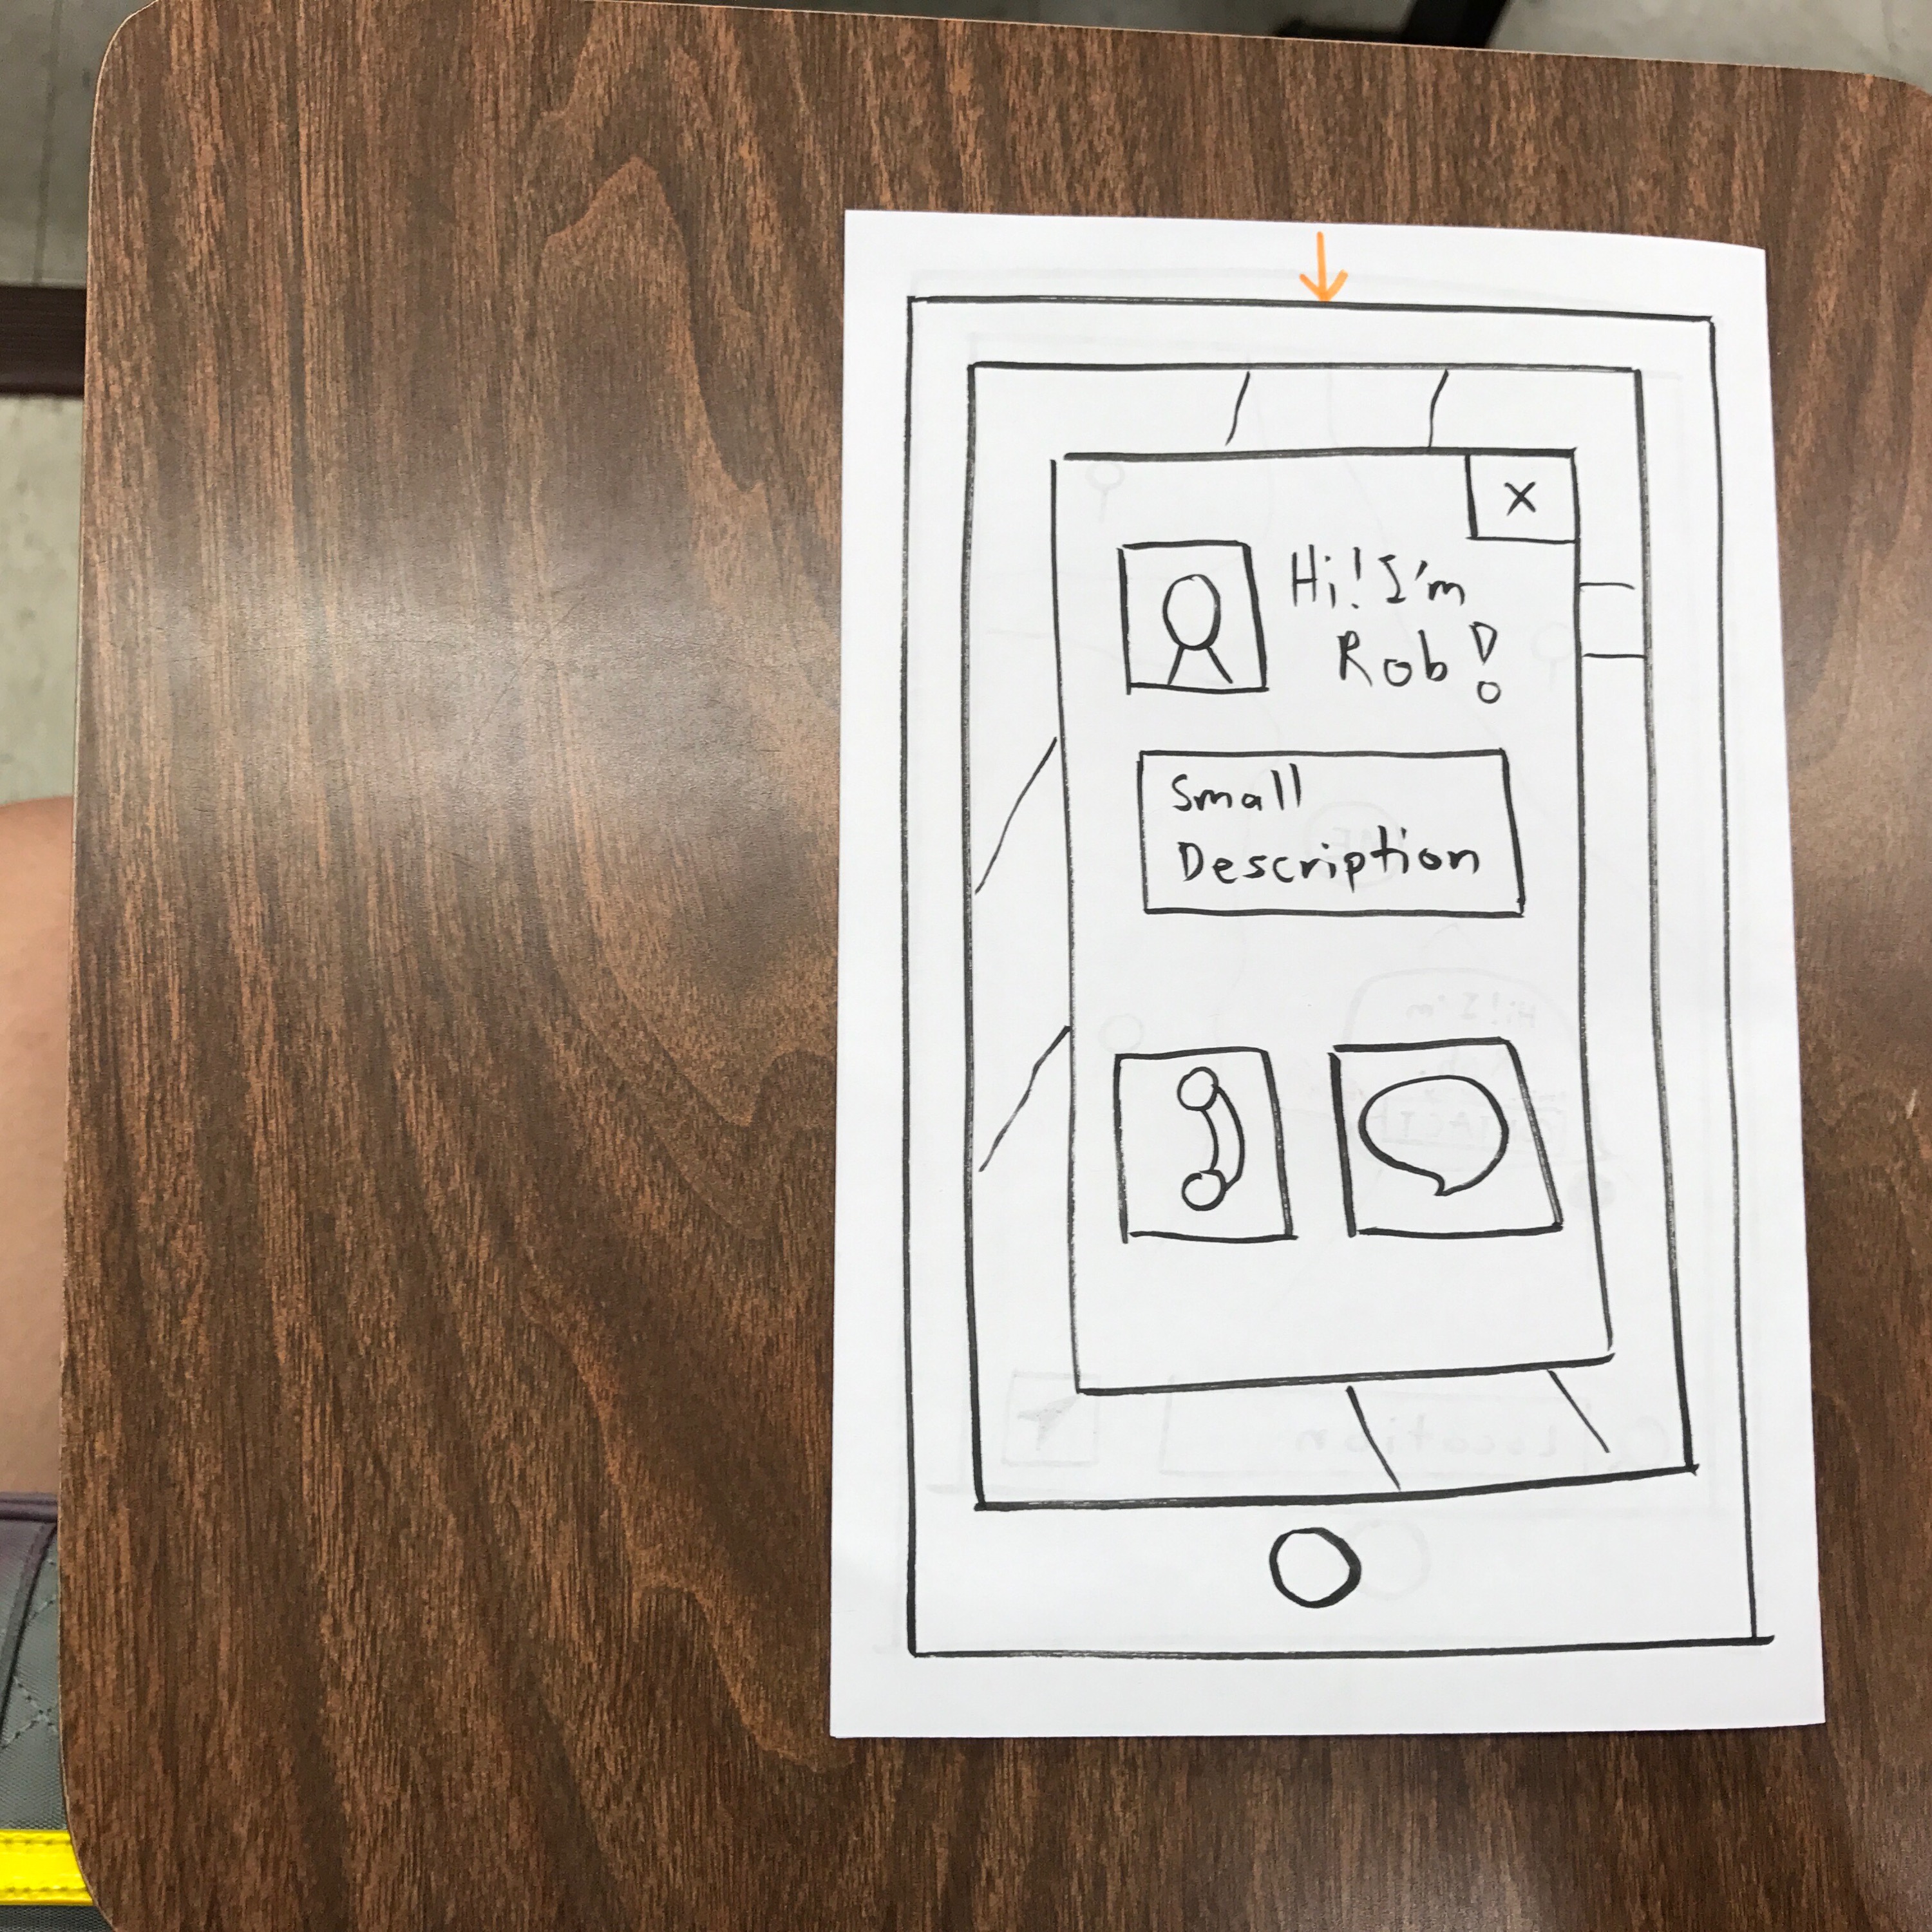 X
Hi! I'm
Rob!
Small
Description